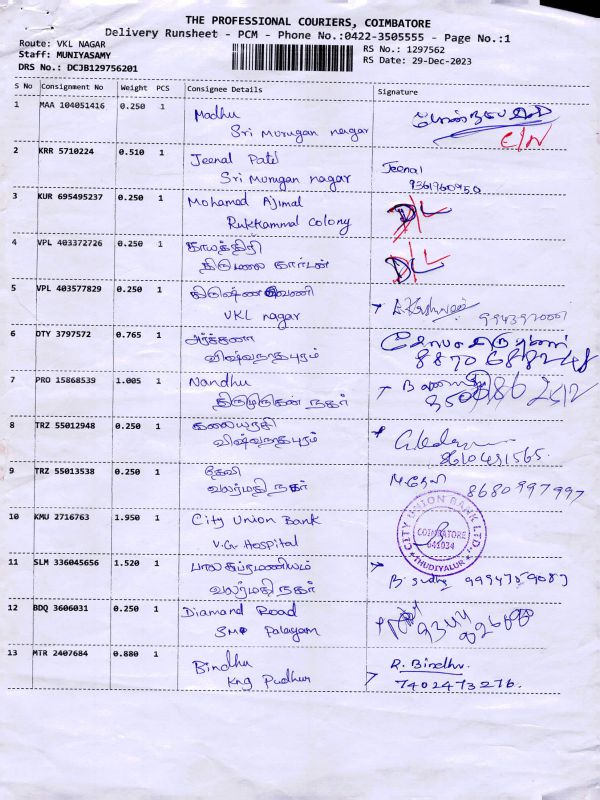 THE PROFESSIONAL COURIERS, COIMBATORE
Delivery Runsheet - PCM - Phone No.:0422-3505555 - Page No.:1
Route: VKL NAGAR
Staff: MUNIYASAMY
DRS No.: DCJB129756201
RS No.: 1297562
RS Date: 29-Dec-2023
S No Consignment No Weight PCS Consignee Details Signature
1 MAA 104051416 0.250 1 Madhu
Sri Murugan nagar
2 KRR 5710224 0.510 1 Jeenal Patel Jeenal
Sri Murugan nagar 9361960950
3 KUR 695495237 0.250 1 Mohamad Ajmal DL
Rukkammal Colony
4 VPL 403372726 0.250 1 காயத்திரி DL
திருமலை கார்டன்
5 VPL 403577829 0.250 1
VKL nagar
6 DTY 3797572 0.765 1 அர்ச்சனா
விஷ்வநாதபுரம் 8870688248
7 PRO 15868539 1.005 1 Nandhu
திருமுருகன் நகர்
8 TRZ 55012948 0.250 1 கலையரசி
விஷ்வநாதபுரம் 8610491565.
9 TRZ 55013538 0.250 1 தேவி M.தேவி
வளர்மதி நகர் 8680997997
10 KMU 2716763 1.950 1 City Union Bank
V.G Hospital
CITY UNION BANK LTD.
COIMBATORE
641034
THUDIYALUR
11 SLM 336045656 1.520 1 பாலசுப்ரமணியம்
வளர்மதி நகர் B. Sudha 9994759087
12 BDQ 3606031 0.250 1 Diamand Road
SMP Palayam
13 MTR 2407684 0.880 1 Bindhu R. Bindhu.
Kng Pudhur 7402473276.